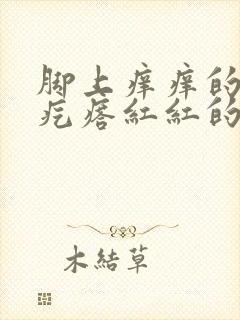 脚上痒痒的
疙瘩红红的
木結草